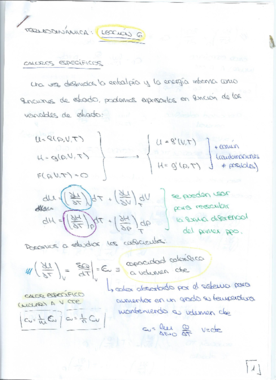 TERMODINÁMICA: LECCIÓN 6
CALORES ESPECÍFICOS
Una vez definidas la entalpía y la energía interna como
funciones de estado, podemos expresarlas en función de las
variables de estado:
U = f(P,V,T)
H = g(P,V,T)
F(P,V,T) = 0
U = f'(V,T)
H = g'(P,T)
dU = (∂U/∂T)_V dT + (∂U/∂V)_T dV
dH = (∂H/∂T)_P dT + (∂H/∂P)_T dP
se pueden usar
para
la forma diferencial
del primer ppo.
Pasamos a estudiar los coeficientes
capacidad calorífica
a volumen cte
calor absorbido por el sistema para
aumentar en un grado su temperatura
manteniendo su volumen cte
CALOR ESPECÍFICO
A V CTE
V=cte
1